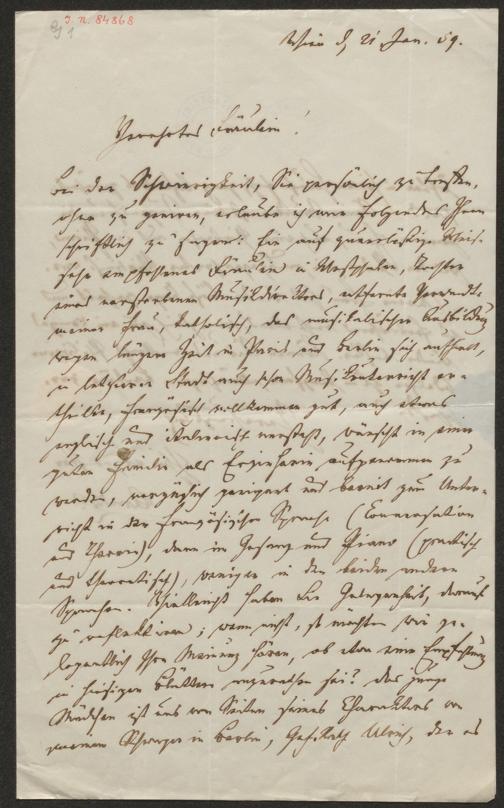 I. N. 84868
Wien d. 21 Jan. 59.
Verehrtes Fräulein!
Bei der Schwierigkeit, Sie persönlich zu treffen,
ohne zu geniren, erlaube ich mir Folgendes Ihnen
schriftlich zu sagen: Ein auf zuverlässige Wei-
se empfohlenes Fräulein in Westphalen, Tochter
eines verstorbenen Musikdirectors, entfernte Verwandte
meiner Frau, katholisch, das musikalischer Ausbildung
wegen längere Zeit in Paris und Berlin sich aufhielt,
in letzterer Stadt auch schon Musikunterricht er-
theilte, französisch vollkommen gut, auch etwas
englisch und italienisch versteht, wünscht in einer
guten Familie als Erzieherin aufgenommen zu
werden, vorzüglich geeignet und bereit zum Unter-
richt in der französischen Sprache (Conversation
und Theorie), dann in Gesang und Piano (practisch
und theoretisch), weniger in den beiden andern
Sprachen. Vielleicht haben Sie Gelegenheit, darauf
zu reflektiren; wenn nicht, so möchten wir ge-
legentlich Ihre Meinung hören, ob etwa eine Empfehlung
in hiesigen Blättern anzurathen sei? Das junge
Mädchen ist uns von Seiten seines Charakters von
meinem Schwager in Berlin, Geh. Rath Ulrich, der es